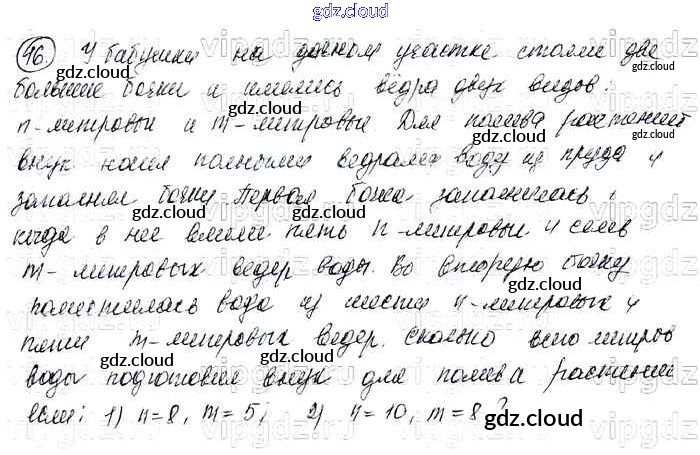 gdz.cloud
46. У бабушки на дачном участке стояли две
большие бочки и имелись вёдра двух видов:
n-литровые и m-литровые. Для полива растений
внук носил полными ведрами воду из пруда и
заполнял бочки. Первая бочка заполнилась,
когда в нее влили пять n-литровых и семь
m-литровых ведер воды. Во вторую бочку
поместилась вода из шести n-литровых и
пяти m-литровых ведер. Сколько всего литров
воды подготовил внук для полива растений
если: 1) n=8, m=5; 2) n=10, m=8?